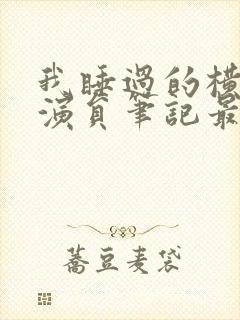 我睡過的橫
演員筆記最
蕎豆麦袋